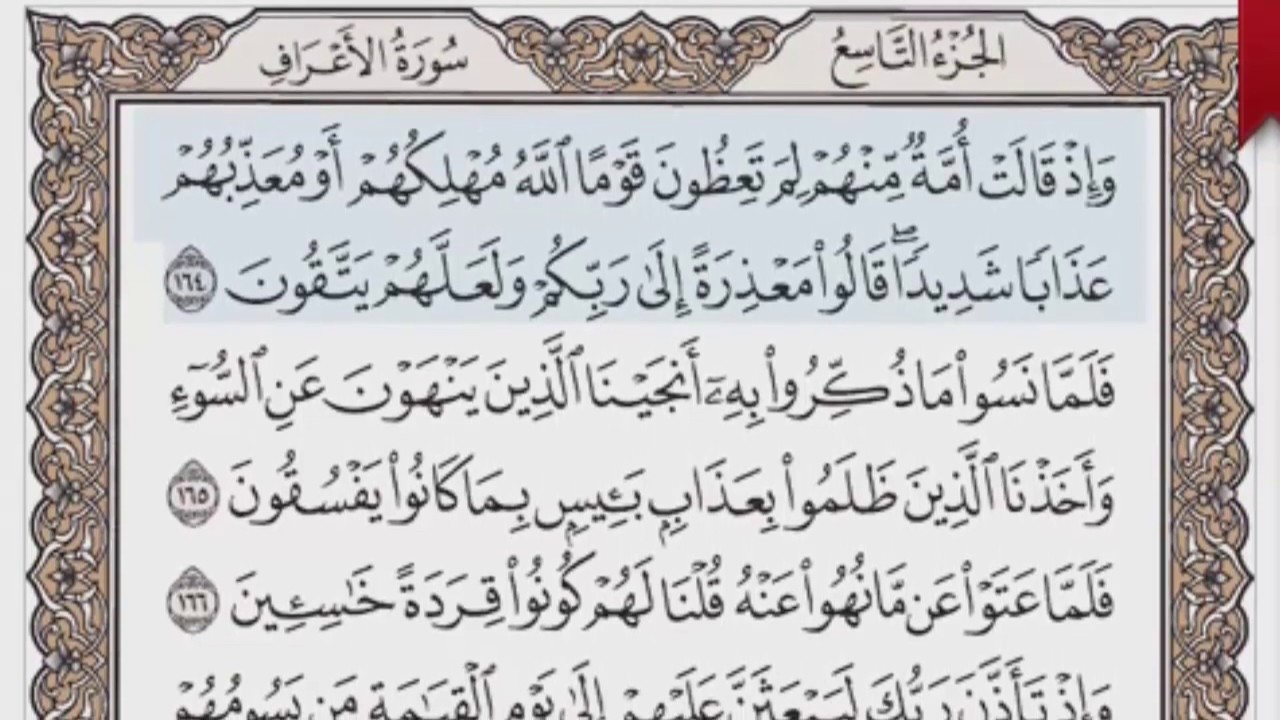 الجُزْءُ التَّاسِعُ
سُورَةُ الأَعْرَافِ
وَإِذْ قَالَتْ أُمَّةٌ مِّنْهُمْ لِمَ تَعِظُونَ قَوْمًا ٱللَّهُ مُهْلِكُهُمْ أَوْ مُعَذِّبُهُمْ
عَذَابًا شَدِيدًاۖ قَالُوا۟ مَعْذِرَةً إِلَىٰ رَبِّكُمْ وَلَعَلَّهُمْ يَتَّقُونَ ١٦٤
فَلَمَّا نَسُوا۟ مَا ذُكِّرُوا۟ بِهِۦٓ أَنجَيْنَا ٱلَّذِينَ يَنْهَوْنَ عَنِ ٱلسُّوٓءِ
وَأَخَذْنَا ٱلَّذِينَ ظَلَمُوا۟ بِعَذَابٍۭ بَـِٔيسٍۭ بِمَا كَانُوا۟ يَفْسُقُونَ ١٦٥
فَلَمَّا عَتَوْا۟ عَن مَّا نُهُوا۟ عَنْهُ قُلْنَا لَهُمْ كُونُوا۟ قِرَدَةً خَـٰسِـِٔينَ ١٦٦
وَإِذْ تَأَذَّنَ رَبُّكَ لَيَبْعَثَنَّ عَلَيْهِمْ إِلَىٰ يَوْمِ ٱلْقِيَـٰمَةِ مَن يَسُومُهُمْ